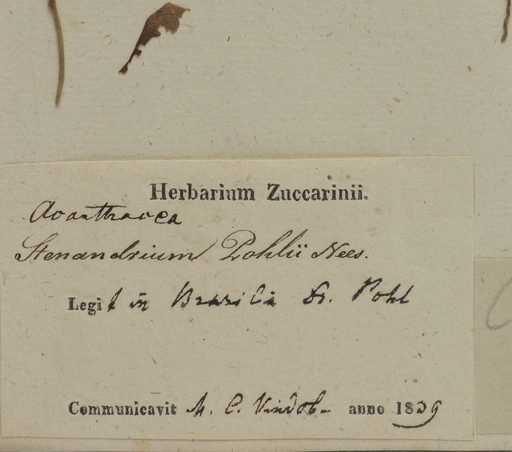 Herbarium Zuccarinii.
Acanthacea
Stenandrium Pohlii Nees.
Legit in Brasilia Dr. Pohl
Communicavit M. C. Vindob. anno 1839